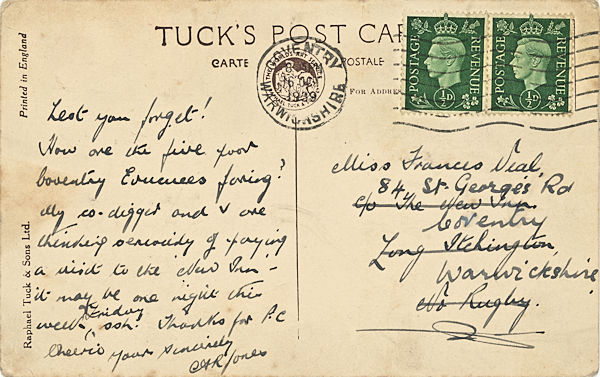 TUCK'S POST CAR
CARTE POSTALE
FOR ADDRES
COVENTRY
WARWICKSHIRE
1939
POSTAGE REVENUE
½D
POSTAGE REVENUE
½D
Printed in England
Raphael Tuck & Sons Ltd.
Lest you forget!
How are the five poor
Coventry Evacuees faring?
My co-digger and I are
thinking seriously of paying
a visit to the New Inn -
it may be one night this
week Friday, ssh! Thanks for P.C
Cheerio Yours Sincerely
Jones
Miss Frances Veal,
84, St. Georges Rd
c/o The New Inn
Coventry
Long Itchington,
Warwickshire
Nr Rugby.